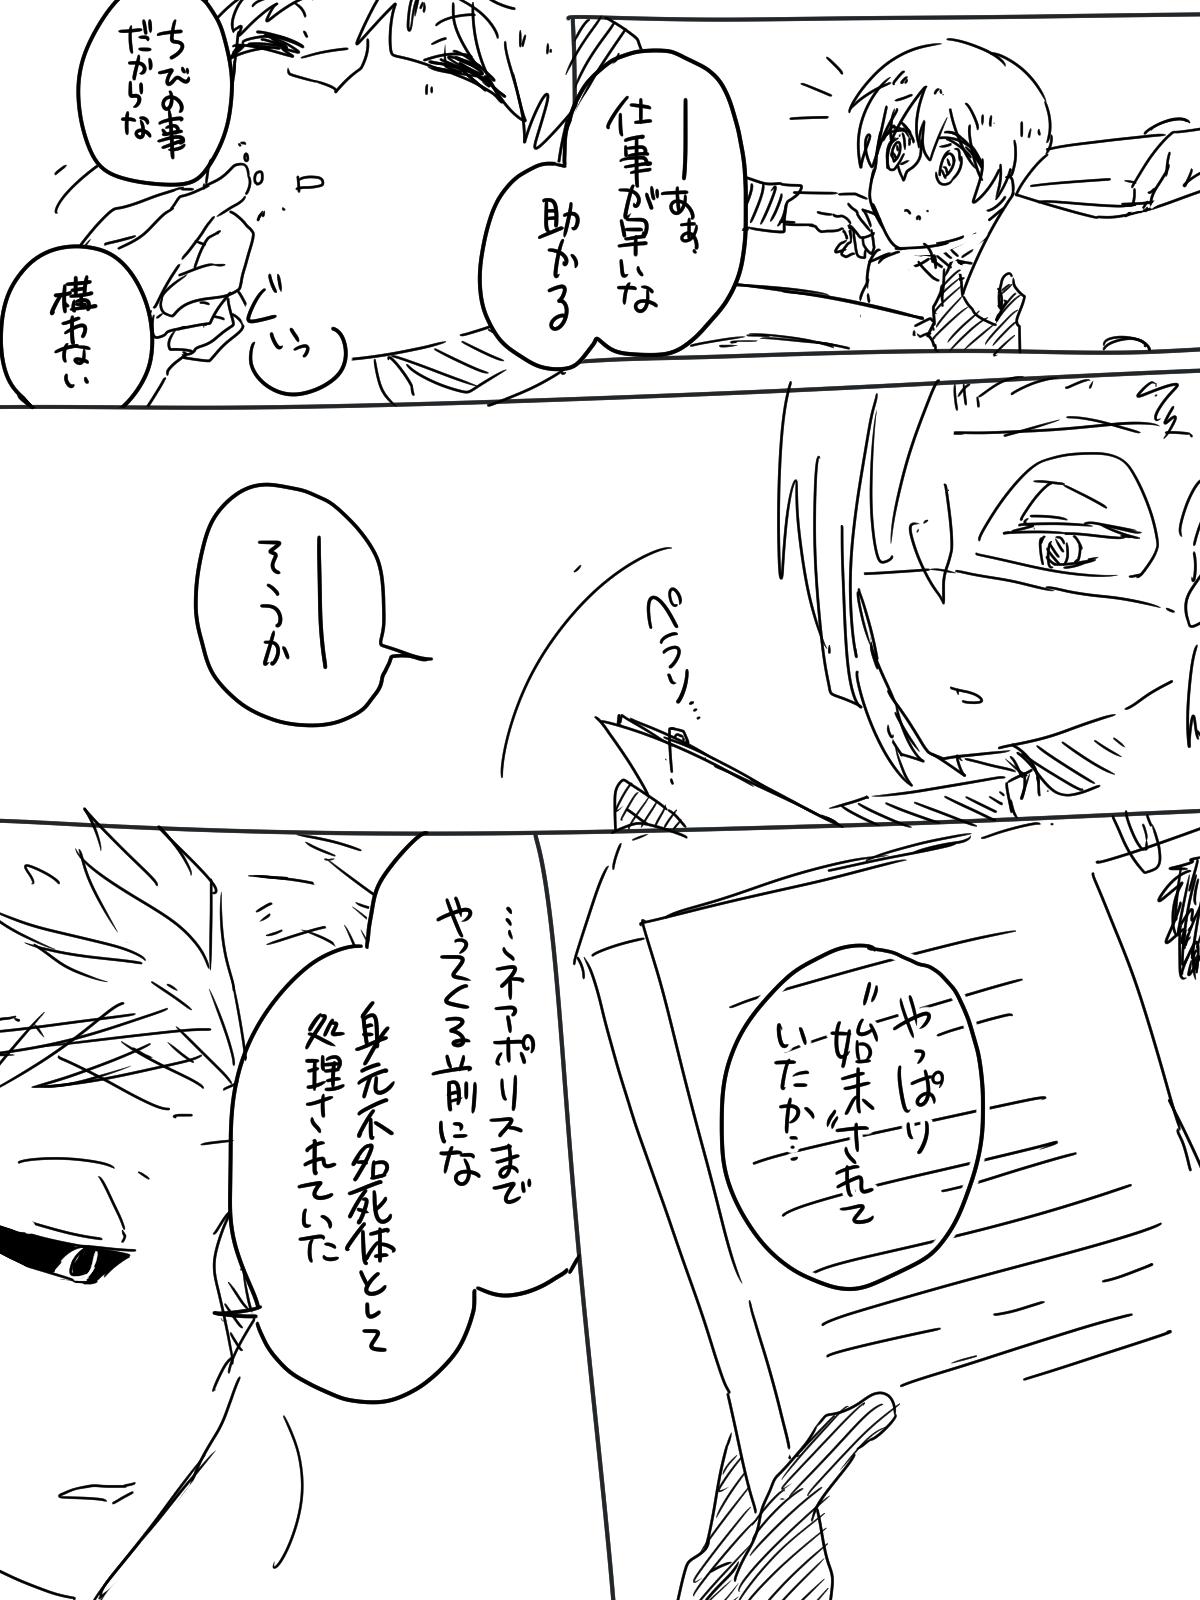 ――あぁ、
仕事が早いな
助かる
ちびの事
だからな
ぐいっ
構わない
ペラリ…
――
そうか
やっぱり
〝始末〟されて
いたか…
…ネアポリスまで
やってくる前にな
身元不名死体として
処理されていた